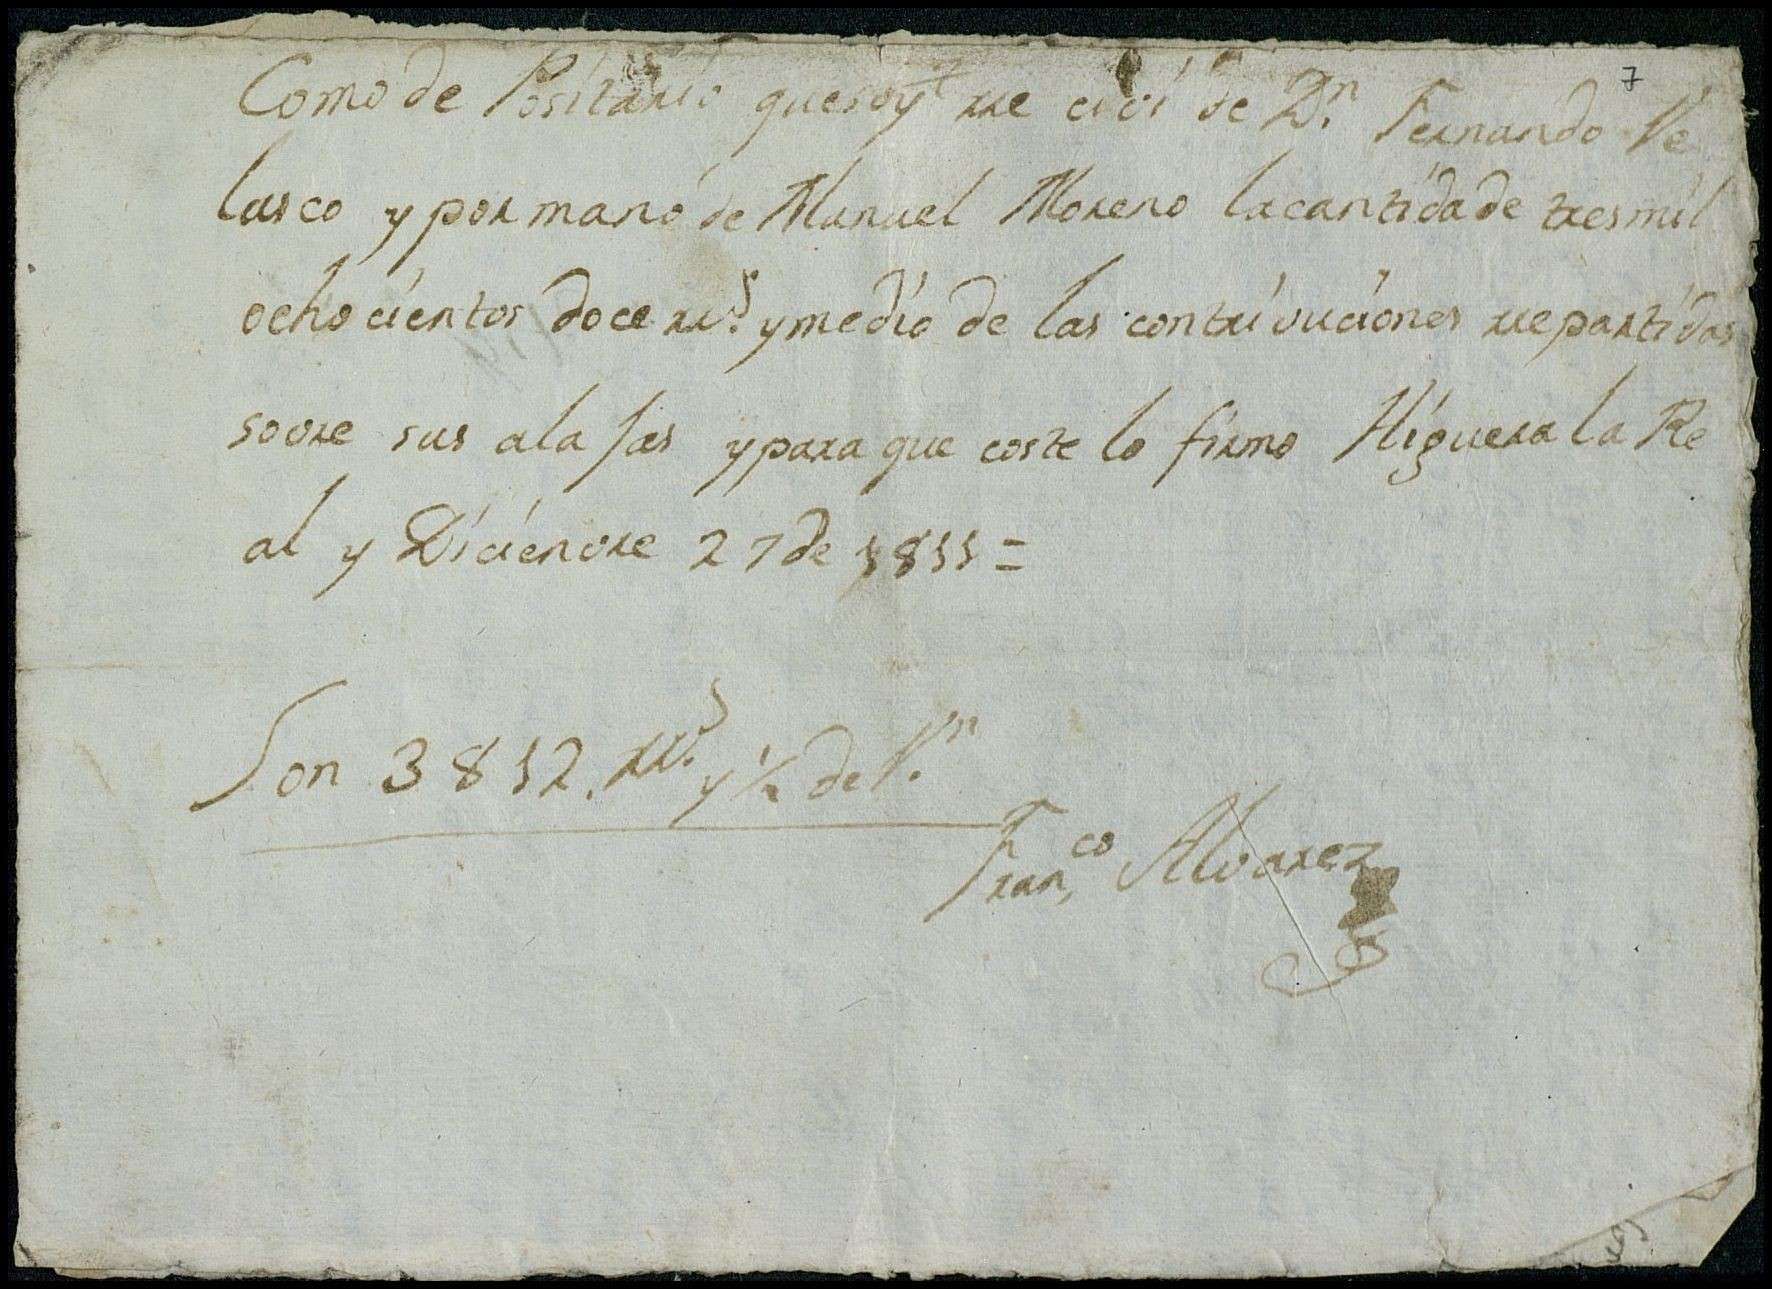 7
Como de Positario que soy rre civi de Dn. Fernando Ve
lasco y por mano de Manuel Moreno la cantidade tres mil
ocho cientos doce rrs. y medio de las contrivuciones rrepartidas
sovre sus ala Jas y para que coste lo firmo Higuera la Re
al y Dicienvre 27 de 1811 =
Son 3812. rrs. y ½ de Vn.
Franco. Alvarez